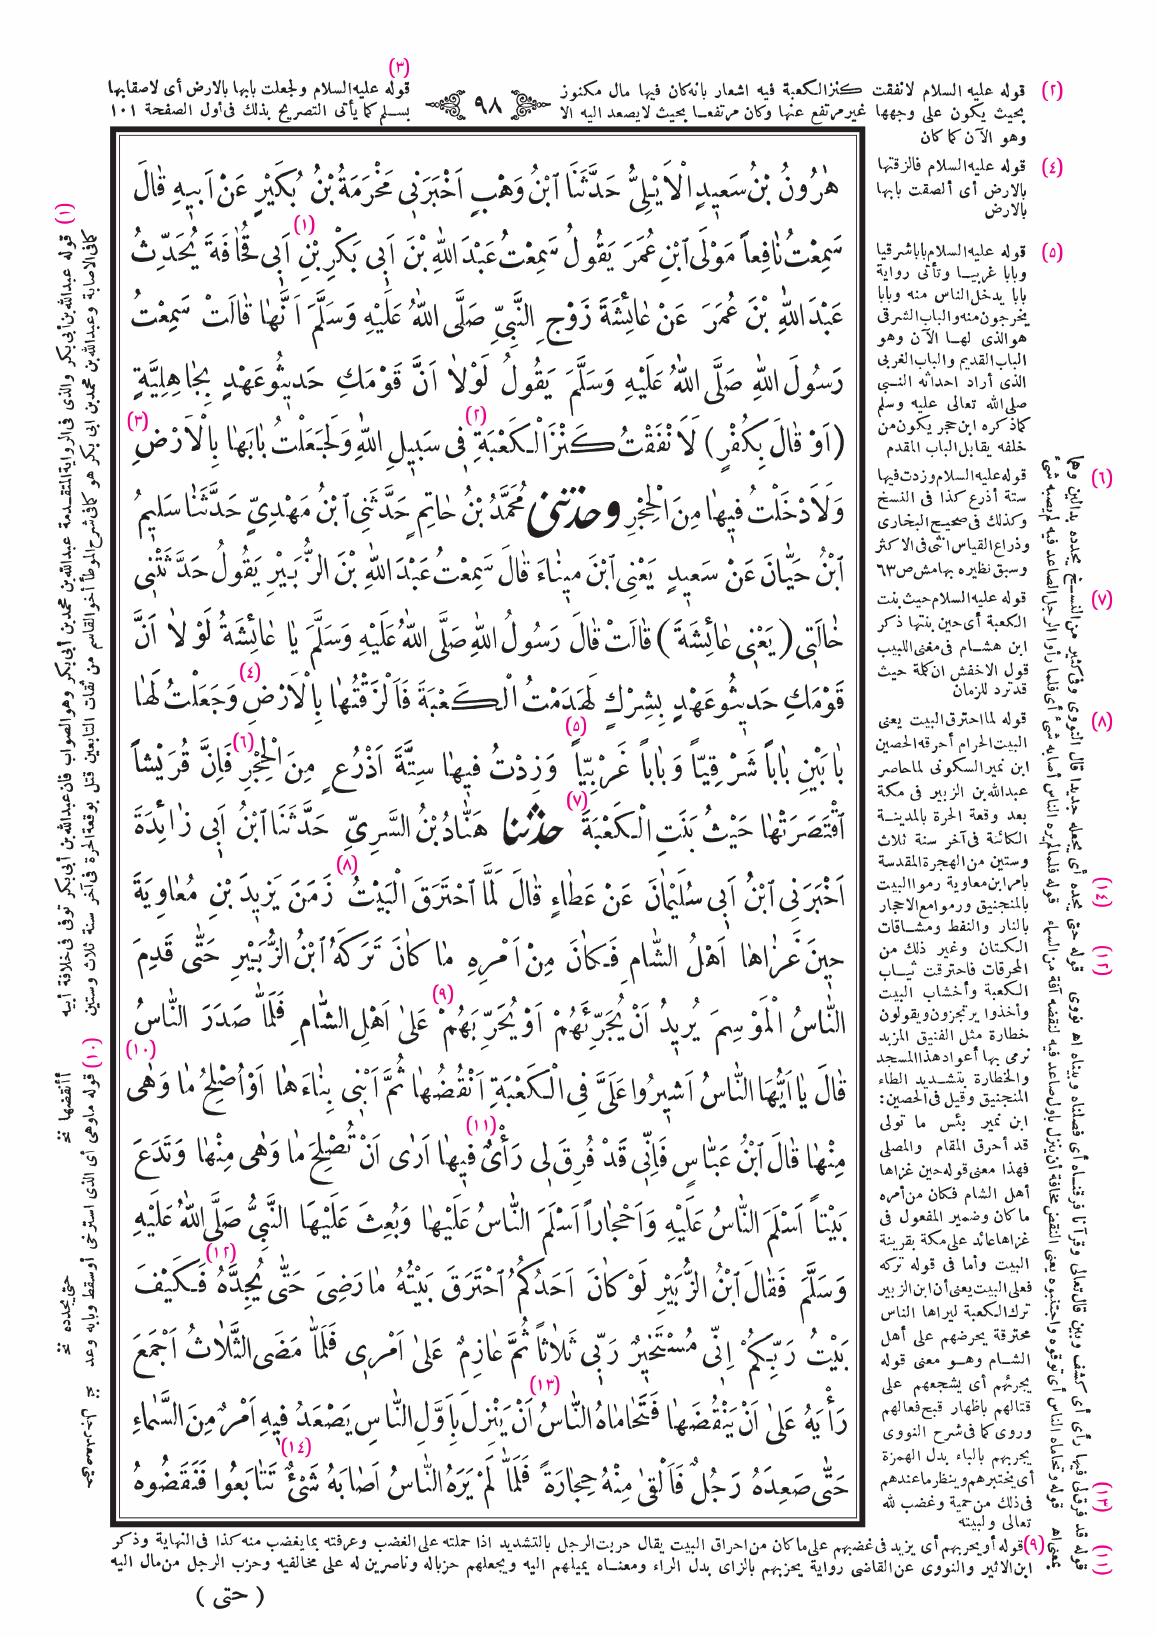 (٣)
(٢) قوله عليه السلام لانفقت كنز الكعبة فيه اشعار بانه كان فيها مال مكنوز
بحيث يكون على وجهها غير مرتفع عنها وكان مرتفعا بحيث لا يصعد اليه الا
وهو الآن كما كان
٩٨
قوله عليه السلام ولجعلت بابها بالارض أى لاصقا بها
بسلم كما يأتى التصريح بذلك فى أول الصفحة ١٠١
هٰرُونُ بْنُ سَعِيدٍ الْاَيْلِىُّ حَدَّثَنَا ابْنُ وَهْبٍ اَخْبَرَنِى مَخْرَمَةُ بْنُ بُكَيْرٍ عَنْ اَبِيهِ قَالَ
سَمِعْتُ نَافِعاً مَوْلَى ابْنِ عُمَرَ يَقُولُ سَمِعْتُ عَبْدَ اللّٰهِ بْنَ اَبِى بَكْرِ بْنِ اَبِى قُحَافَةَ يُحَدِّثُ (١)
عَبْدَ اللّٰهِ بْنَ عُمَرَ عَنْ عَائِشَةَ زَوْجِ النَّبِىِّ صَلَّى اللّٰهُ عَلَيْهِ وَسَلَّمَ اَنَّهَا قَالَتْ سَمِعْتُ
رَسُولَ اللّٰهِ صَلَّى اللّٰهُ عَلَيْهِ وَسَلَّمَ يَقُولُ لَوْلَا اَنَّ قَوْمَكِ حَدِيثُو عَهْدٍ بِجَاهِلِيَّةٍ
(اَوْ قَالَ بِكُفْرٍ) لَاَنْفَقْتُ كَنْزَ الْكَعْبَةِ (٢) فِى سَبِيلِ اللّٰهِ وَلَجَعَلْتُ بَابَهَا بِالْاَرْضِ (٣)
وَلَاَدْخَلْتُ فِيهَا مِنَ الْحِجْرِ وحدثنى مُحَمَّدُ بْنُ حَاتِمٍ حَدَّثَنِى ابْنُ مَهْدِىٍّ حَدَّثَنَا سَلِيمُ
ابْنُ حَيَّانَ عَنْ سَعِيدٍ يَعْنِى ابْنَ مِينَاءَ قَالَ سَمِعْتُ عَبْدَ اللّٰهِ بْنَ الزُّبَيْرِ يَقُولُ حَدَّثَتْنِى
خَالَتِى (يَعْنِى عَائِشَةَ) قَالَتْ قَالَ رَسُولُ اللّٰهِ صَلَّى اللّٰهُ عَلَيْهِ وَسَلَّمَ يَا عَائِشَةُ لَوْلَا اَنَّ
قَوْمَكِ حَدِيثُو عَهْدٍ بِشِرْكٍ لَهَدَمْتُ الْكَعْبَةَ فَاَلْزَقْتُهَا بِالْاَرْضِ (٤) وَجَعَلْتُ لَهَا
بَابَيْنِ بَاباً شَرْقِيّاً وَبَاباً غَرْبِيّاً (٥) وَزِدْتُ فِيهَا سِتَّةَ اَذْرُعٍ مِنَ الْحِجْرِ (٦) فَاِنَّ قُرَيْشاً
اقْتَصَرَتْهَا حَيْثُ بَنَتِ الْكَعْبَةَ (٧) حدثنا هَنَّادُ بْنُ السَّرِىِّ حَدَّثَنَا ابْنُ اَبِى زَائِدَةَ
اَخْبَرَنِى ابْنُ اَبِى سُلَيْمَانَ عَنْ عَطَاءٍ قَالَ لَمَّا احْتَرَقَ الْبَيْتُ (٨) زَمَنَ يَزِيدَ بْنِ مُعَاوِيَةَ
حِينَ غَزَاهَا اَهْلُ الشَّامِ فَكَانَ مِنْ اَمْرِهِ مَا كَانَ تَرَكَهُ ابْنُ الزُّبَيْرِ حَتَّى قَدِمَ
النَّاسُ الْمَوْسِمَ يُرِيدُ اَنْ يُجَرِّئَهُمْ اَوْ يُحَرِّبَهُمْ (٩) عَلَى اَهْلِ الشَّامِ فَلَمَّا صَدَرَ النَّاسُ
قَالَ يَا اَيُّهَا النَّاسُ اَشِيرُوا عَلَىَّ فِى الْكَعْبَةِ اَنْقُضُهَا ثُمَّ اَبْنِى بِنَاءَهَا اَوْ اُصْلِحُ مَا وَهٰى (١٠)
مِنْهَا قَالَ ابْنُ عَبَّاسٍ فَاِنِّى قَدْ فُرِقَ لِى رَأْىٌ (١١) فِيهَا اَرٰى اَنْ تُصْلِحَ مَا وَهٰى مِنْهَا وَتَدَعَ
بَيْتاً اَسْلَمَ النَّاسُ عَلَيْهِ وَاَحْجَاراً اَسْلَمَ النَّاسُ عَلَيْهَا وَبُعِثَ عَلَيْهَا النَّبِىُّ صَلَّى اللّٰهُ عَلَيْهِ
وَسَلَّمَ فَقَالَ ابْنُ الزُّبَيْرِ لَوْ كَانَ اَحَدُكُمُ احْتَرَقَ بَيْتُهُ مَا رَضِىَ حَتَّى يُجِدَّهُ (١٢) فَكَيْفَ
بَيْتُ رَبِّكُمْ اِنِّى مُسْتَخِيرٌ رَبِّى ثَلَاثاً ثُمَّ عَازِمٌ عَلَى اَمْرِى فَلَمَّا مَضَى الثَّلَاثُ اَجْمَعَ
رَأْيَهُ عَلَى اَنْ يَنْقُضَهَا فَتَحَامَاهُ النَّاسُ (١٣) اَنْ يَنْزِلَ بِاَوَّلِ النَّاسِ يَصْعَدُ فِيهِ اَمْرٌ مِنَ السَّمَاءِ
حَتَّى صَعِدَهُ رَجُلٌ فَاَلْقٰى مِنْهُ حِجَارَةً فَلَمَّا لَمْ يَرَهُ النَّاسُ اَصَابَهُ شَىْءٌ (١٤) تَتَابَعُوا فَنَقَضُوهُ
(٤) قوله عليه السلام فالزقتها
بالارض أى ألصقت بابها
بالارض
(٥) قوله عليه السلام بابا شرقيا
وبابا غربيا وتأتى رواية
بابا يدخل الناس منه وبابا
يخرجون منه والباب الشرقى
هو الذى لها الآن وهو
الباب القديم والباب الغربى
الذى أراد احداثه النبى
صلى الله تعالى عليه وسلم
كما ذكره ابن حجر يكون من
خلفه يقابل الباب المقدم
(٦) قوله عليه السلام وزدت فيها
ستة أذرع كذا فى النسخ
وكذلك فى صحيح البخارى
وذراع القياس انثى فى الاكثر
وسبق نظيره بهامش ص ٦٣
(٧) قوله عليه السلام حيث بنت
الكعبة أى حين بنتها ذكر
ابن هشام فى مغنى اللبيب
قول الاخفش ان كلمة حيث
قد ترد للزمان
(٨) قوله لما احترق البيت يعنى
البيت الحرام أحرقه الحصين
ابن نمير السكونى لما حاصر
عبدالله بن الزبير فى مكة
بعد وقعة الحرة بالمدينة
الكائنة فى آخر سنة ثلاث
وستين من الهجرة المقدسة
بامر ابن معاوية رموا البيت
بالمنجنيق ورموا مع الاحجار
بالنار والنفط ومشاقات
الكتان وغير ذلك من
المحرقات فاحترقت ثياب
الكعبة وأخشاب البيت
وأخذوا يرتجزون ويقولون
خطارة مثل الفنيق المزبد
نرمى بها أعواد هذا المسجد
والخطارة بتشديد الطاء
المنجنيق وقيل فى الحصين:
ابن نمير بئس ما تولى
قد أحرق المقام والمصلى
فهذا معنى قوله حين غزاها
أهل الشام فكان من أمره
ما كان وضمير المفعول فى
غزاها عائد على مكة بقرينة
البيت وأما فى قوله تركه
فعلى البيت يعنى أن ابن الزبير
ترك الكعبة ليراها الناس
محترقة يحرضهم على أهل
الشام وهو معنى قوله
يجرئهم أى يشجعهم على
قتالهم باظهار قبح فعالهم
وروى كما فى شرح النووى
يجربهم بالباء بدل الهمزة
أى يختبرهم وينظر ما عندهم
فى ذلك من حمية وغضب لله
تعالى ولبيته
(١) قوله عبدالله بن أبى بكر والذى فى الرواية المتقدمة عبدالله بن محمد بن أبى بكر وهو الصواب فان عبدالله بن أبى بكر توفى فى خلافة أبيه
كما فى الاصابة وعبدالله بن محمد بن ابى بكر هو كما فى شرح الموطأ أخو القاسم من ثقات التابعين قتل بوقعة الحرة فى آخر سنة ثلاث وستين
(١٠) قوله ما وهى أى الذى استرخى أو سقط وبابه وعد
أأنقضها نخ
حتى يجدده نخ
(١١) قوله قد فرق لى فيها رأى أى كشف وبين قال تعالى وقرآنا فرقناه أى فصلناه وبيناه اه نووى
(١٢) قوله حتى يجده أى يجعله جديدا قال النووى وفى كثير من النسخ يجدده بدالين وهما بمعنى اه
(١٣) قوله فتحاماه الناس أى توقوه واجتنبوه يعنى النقض مخافة أن ينزل باول صاعد فيه لنقضه آفة من السماء
(١٤) قوله فلما لم يره الناس أصابه شىء أى فلما رأوا الرجل الصاعد فيه لم يصبه شىء
(٩) قوله أو يحربهم أى يزيد فى غضبهم على ما كان من احراق البيت يقال حربت الرجل بالتشديد اذا حملته على الغضب وعرفته بما يغضب منه كذا فى النهاية وذكر
ابن الاثير والنووى عن القاضى رواية يحزبهم بالزاى بدل الراء ومعناه يميلهم اليه ويجعلهم حزبا له وناصرين له على مخالفيه وحزب الرجل من مال اليه
(حتى)